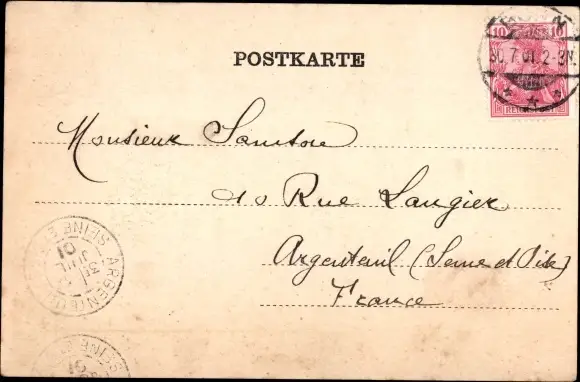 POSTKARTE
10 10
REICHSPOST
30.7.01.2-3N.
Monsieur Samson
10 Rue Laugier
Argenteuil (Seine et Oise)
France
ARGENTEUIL
SEINE
JUIL
01
01